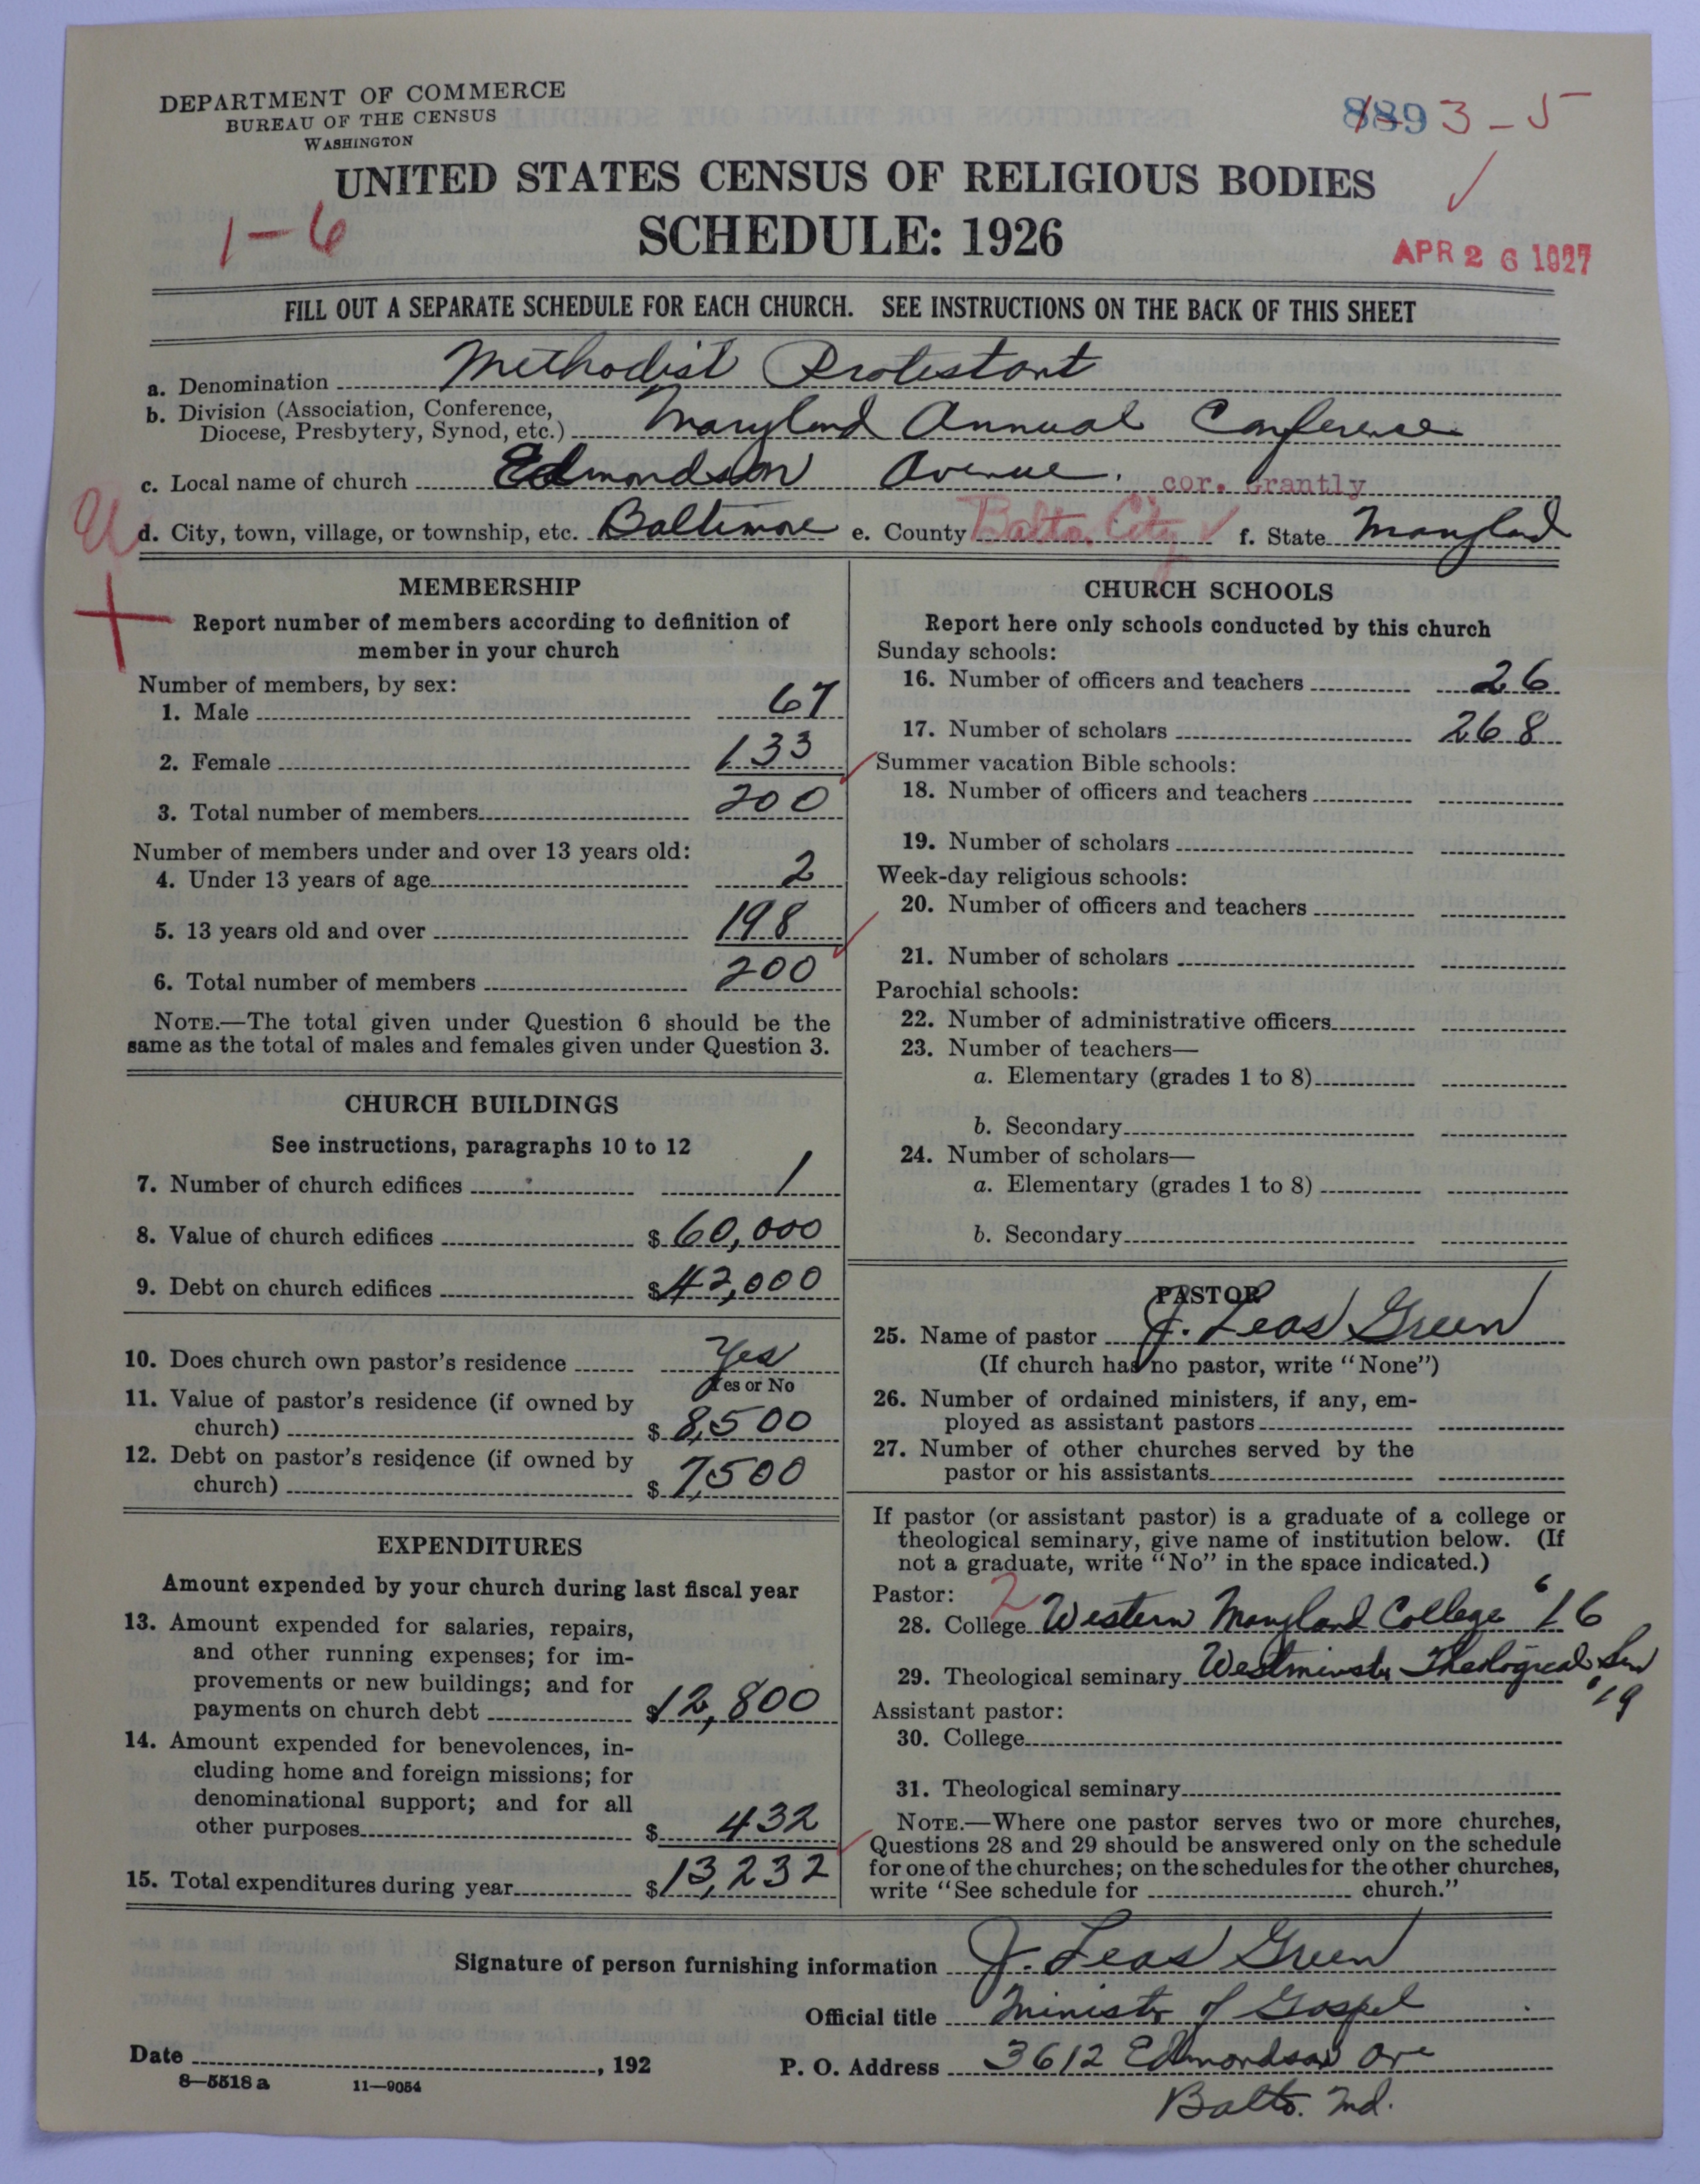 DEPARTMENT OF COMMERCE
BUREAU OF THE CENSUS
WASHINGTON
889 3-5
UNITED STATES CENSUS OF RELIGIOUS BODIES
1-6
SCHEDULE: 1926
APR 26 1927
FILL OUT A SEPARATE SCHEDULE FOR EACH CHURCH. SEE INSTRUCTIONS ON THE BACK OF THIS SHEET
a. Denomination Methodist Protestant
b. Division (Association, Conference,
Diocese, Presbytery, Synod, etc.) Maryland Annual Conference
c. Local name of church Edmondson Avenue. cor. Grantly
d. City, town, village, or township, etc. Baltimore e. County Balto. City f. State Maryland
MEMBERSHIP
Report number of members according to definition of
member in your church
Number of members, by sex:
1. Male 67
2. Female 133
3. Total number of members 200
Number of members under and over 13 years old:
4. Under 13 years of age 2
5. 13 years old and over 198
6. Total number of members 200
NOTE.—The total given under Question 6 should be the
same as the total of males and females given under Question 3.
CHURCH BUILDINGS
See instructions, paragraphs 10 to 12
7. Number of church edifices 1
8. Value of church edifices $ 60,000
9. Debt on church edifices $ 42,000
10. Does church own pastor's residence Yes
Yes or No
11. Value of pastor's residence (if owned by
church) $ 8,500
12. Debt on pastor's residence (if owned by
church) $ 7,500
EXPENDITURES
Amount expended by your church during last fiscal year
13. Amount expended for salaries, repairs,
and other running expenses; for im-
provements or new buildings; and for
payments on church debt $ 12,800
14. Amount expended for benevolences, in-
cluding home and foreign missions; for
denominational support; and for all
other purposes $ 432
15. Total expenditures during year $ 13,232
CHURCH SCHOOLS
Report here only schools conducted by this church
Sunday schools:
16. Number of officers and teachers 26
17. Number of scholars 268
Summer vacation Bible schools:
18. Number of officers and teachers
19. Number of scholars
Week-day religious schools:
20. Number of officers and teachers
21. Number of scholars
Parochial schools:
22. Number of administrative officers
23. Number of teachers—
a. Elementary (grades 1 to 8)
b. Secondary
24. Number of scholars—
a. Elementary (grades 1 to 8)
b. Secondary
PASTOR
25. Name of pastor J. Leas Green
(If church has no pastor, write "None")
26. Number of ordained ministers, if any, em-
ployed as assistant pastors
27. Number of other churches served by the
pastor or his assistants
If pastor (or assistant pastor) is a graduate of a college or
theological seminary, give name of institution below. (If
not a graduate, write "No" in the space indicated.)
Pastor: 2
28. College Western Maryland College '16
29. Theological seminary Westminster Theological Sem
'19
Assistant pastor:
30. College
31. Theological seminary
NOTE.—Where one pastor serves two or more churches,
Questions 28 and 29 should be answered only on the schedule
for one of the churches; on the schedules for the other churches,
write "See schedule for church."
Signature of person furnishing information J. Leas Green
Official title Minister of Gospel
Date , 192 P. O. Address 3612 Edmondson Ave
8—5518 a 11—9054
Balto. Md.